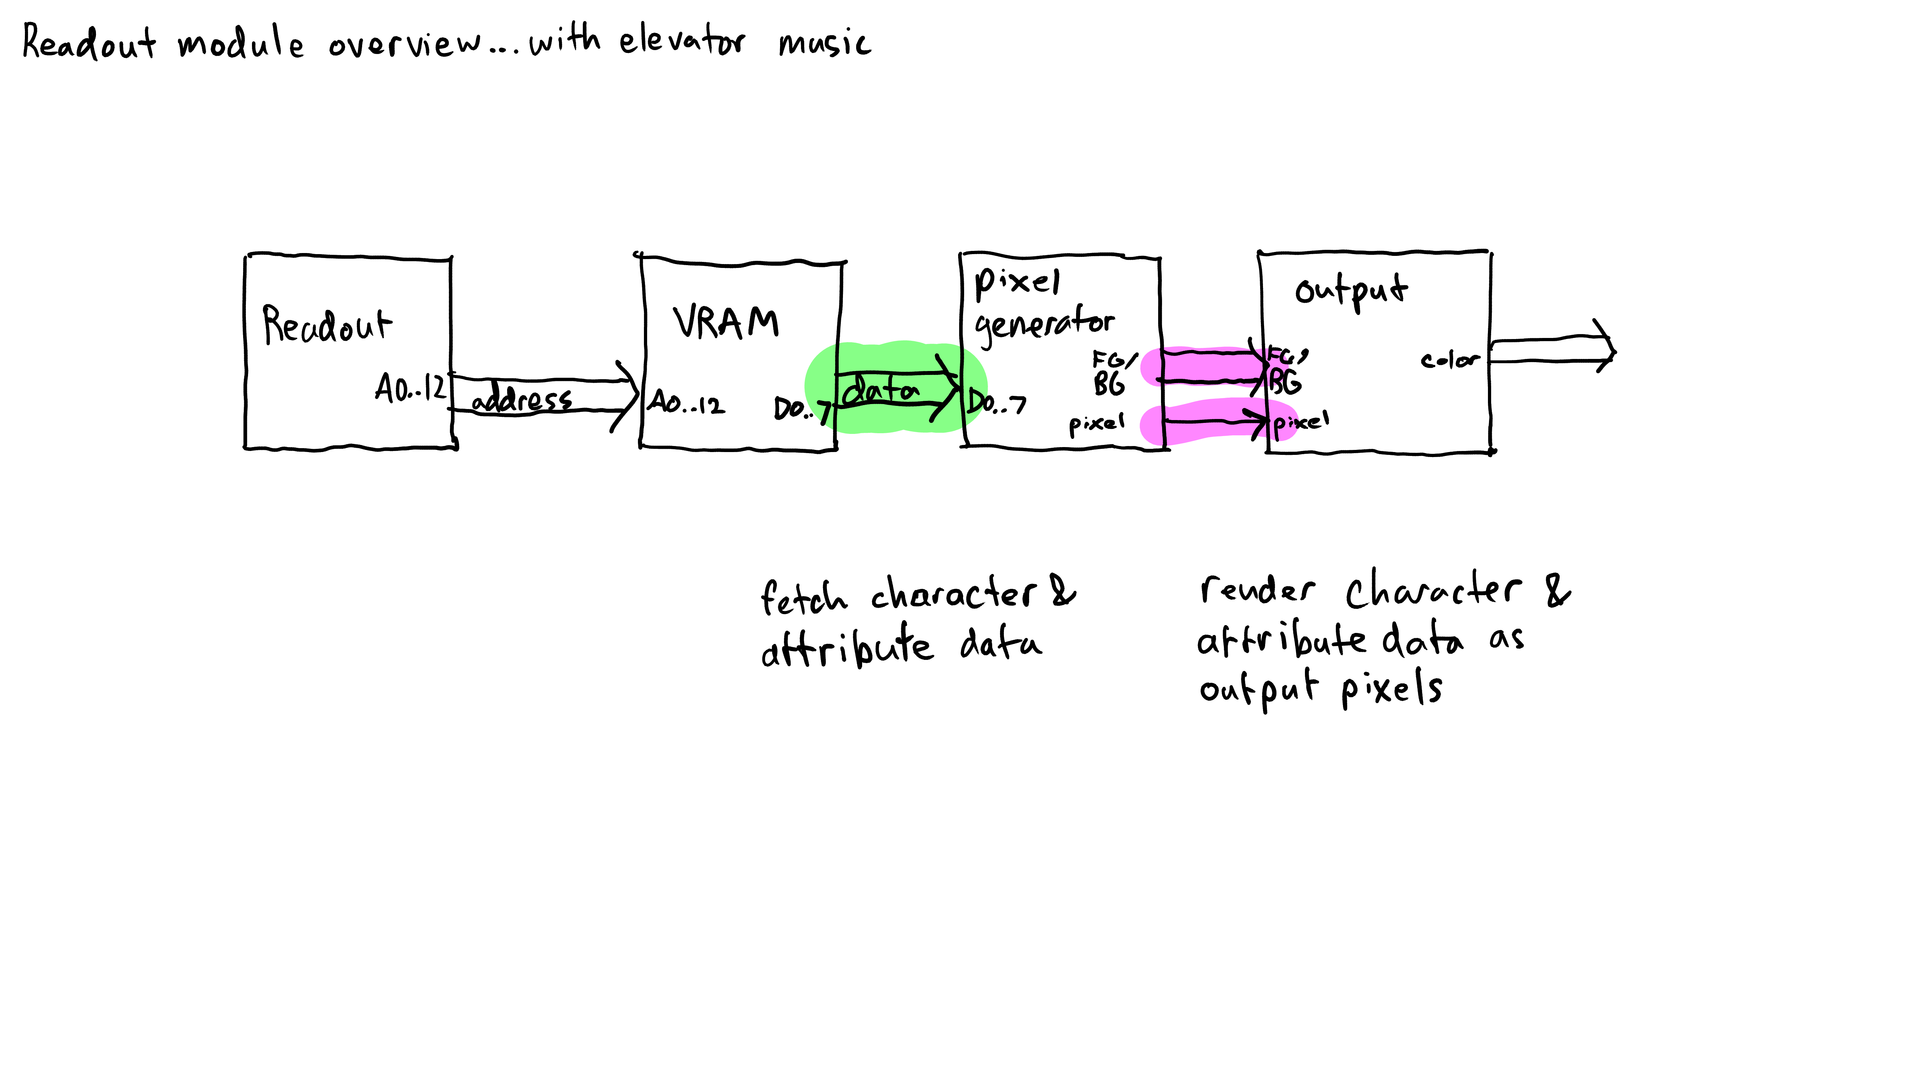 Readout module overview...with elevator music
Readout
A0..12
address
VRAM
A0..12
D0..7
data
pixel
generator
D0..7
FG/
BG
pixel
output
FG,
BG
pixel
color
fetch character &
attribute data
render character &
attribute data as
output pixels